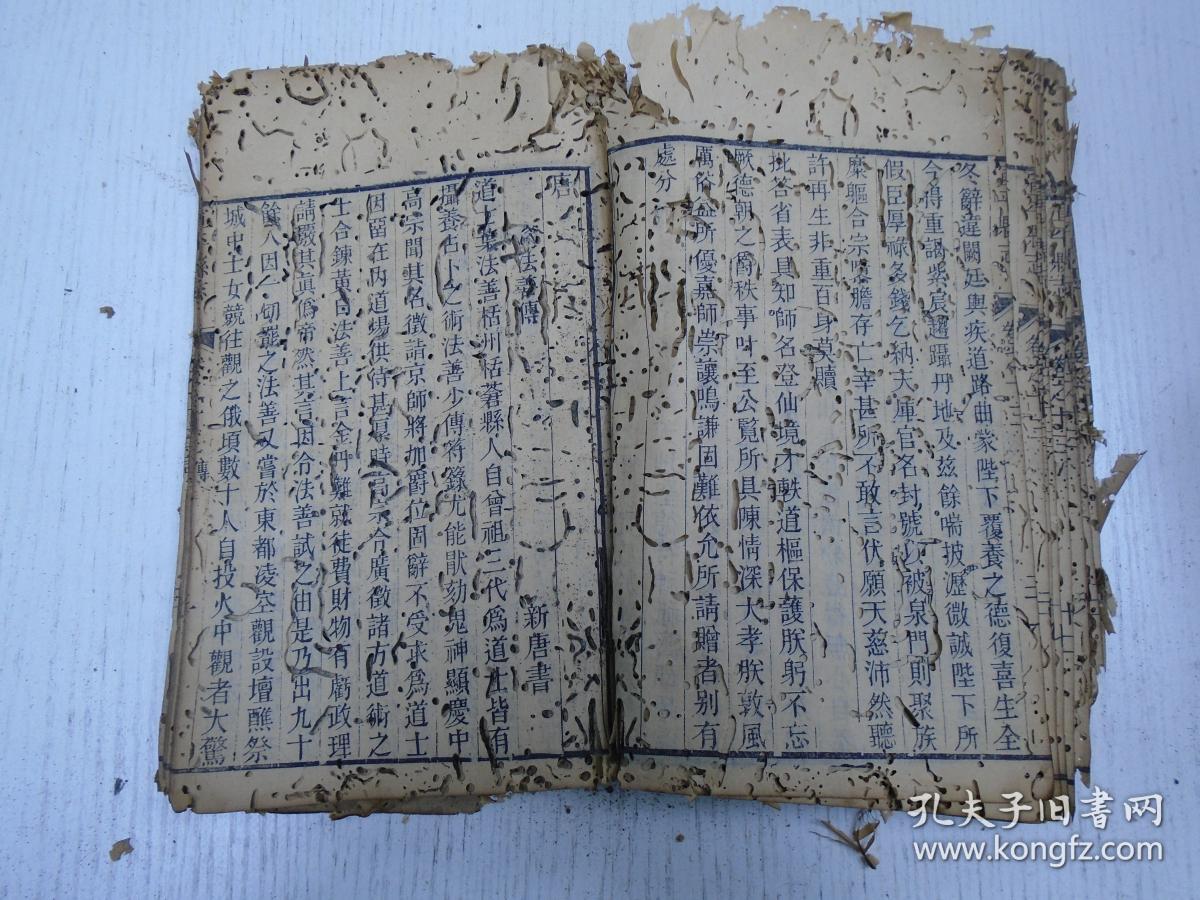 冬辭違闕廷輿疾道路曲蒙陛下覆養之德復喜生全
今得重謁紫宸趨躡丹地及茲餘喘披瀝微誠陛下所
假臣厚祿名錢乞納大庫官名封號以被泉門則聚族
糜軀合宗喋膽存亡幸甚所不敢言伏願天慈沛然聽
許再生非重百身莫贖
批答省表具知師名登仙境才軼道樞保護朕躬不忘
厥德朝之爵秩事叶至公覽所具陳情深大孝朕敦風
厲俗益所優嘉師崇讓鳴謙固難依允所請贈者别有
處分
唐
葉法善傳
新唐書
道士葉法善栝州栝蒼縣人自曾祖三代爲道士皆有
攝養占卜之術法善少傳符籙尤能厭劾鬼神顯慶中
高宗聞其名徵請京師將加爵位固辭不受求爲道士
因留在内道場供侍甚厚時高宗令廣徵諸方道術之
士合鍊黃白法善上言金丹難就徒費財物有虧政理
請覈其眞偽帝然其言因令法善試之由是乃出九十
餘人因一切罷之法善又嘗於東都凌空觀設壇醮祭
城中士女競往觀之俄頃數十人自投火中觀者大驚
傳
孔夫子旧書网
www.kongfz.com